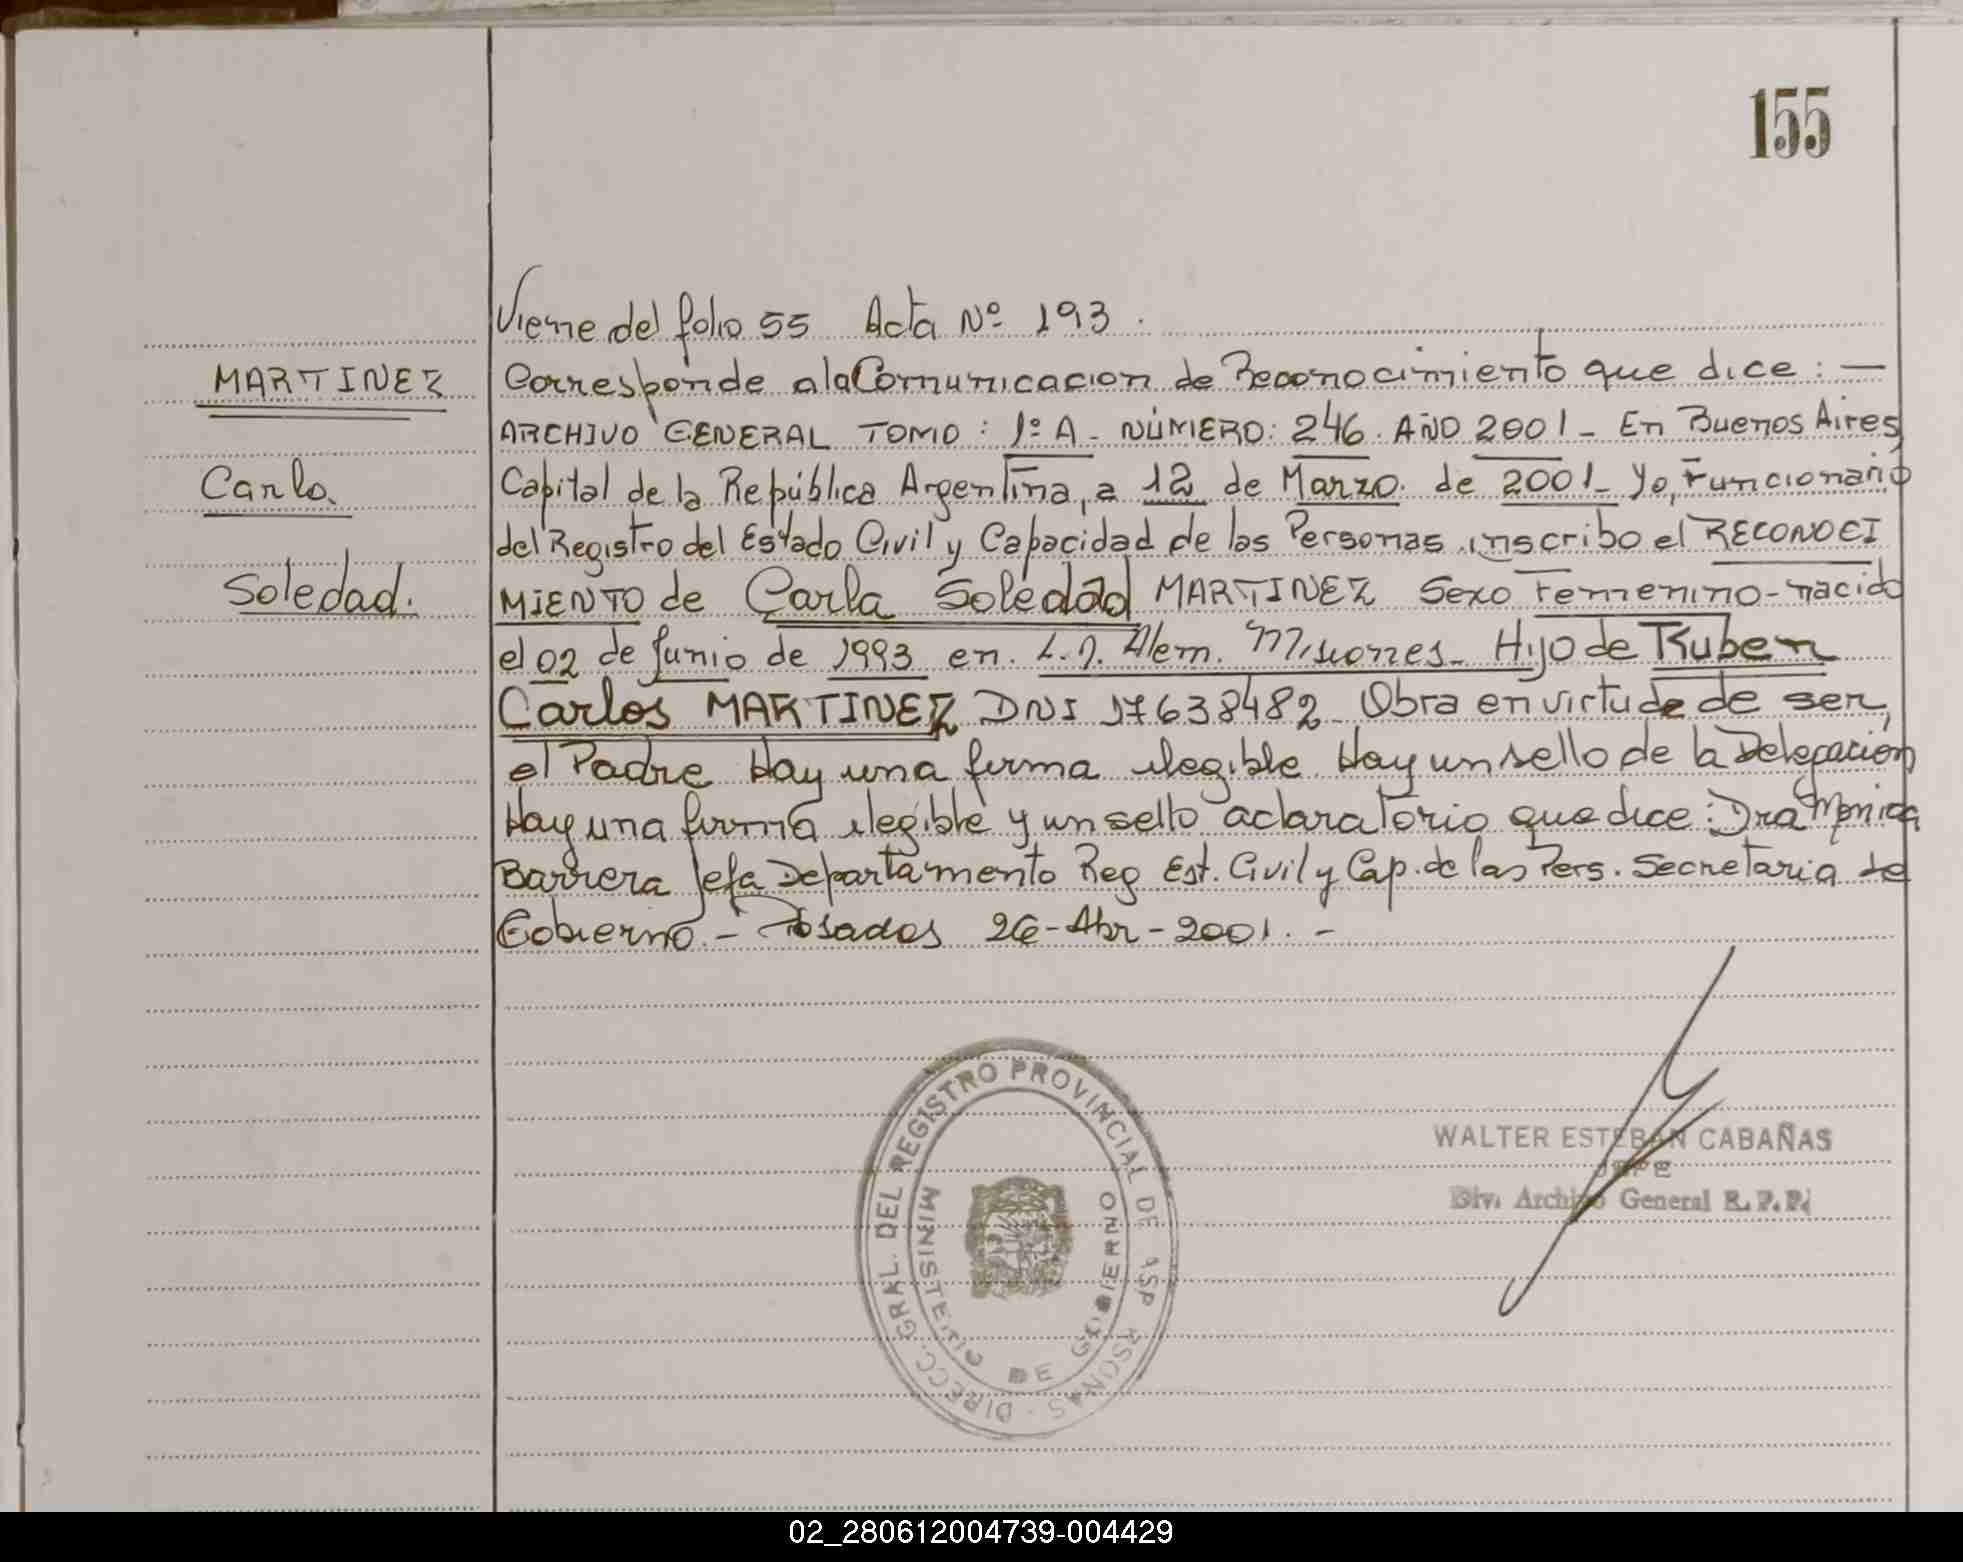 155
Viene del folio 55 Acta Nº 193.
MARTINEZ
Corresponde a la Comunicacion de Reconocimiento que dice: —
ARCHIVO GENERAL TOMO: 1º A - NÚMERO: 246. AÑO 2001 - En Buenos Aires,
Carla
Capital de la República Argentina, a 12 de Marzo. de 2001 - Yo, Funcionario
del Registro del Estado Civil y Capacidad de las Personas, inscribo el RECONOCI
Soledad.
MIENTO de Carla Soledad MARTINEZ Sexo Femenino - nacido
el 02 de Junio de 1993 en. L.N. Alem. Misiones - Hijo de Ruben
Carlos MARTINEZ DNI 17638482 - Obra en virtud de de ser,
el Padre Hay una firma ilegible. Hay un sello de la Delegación
Hay una firma ilegible y un sello aclaratorio que dice: Dra Monica
Barrera Jefa Departamento Reg Est. Civil y Cap. de las Pers. Secretaria de
Gobierno. - Posadas 26 - Abr - 2001. -
DIRECC. GRAL. DEL REGISTRO PROVINCIAL DE
MINISTERIO DE GOBIERNO
WALTER ESTEBAN CABAÑAS
JEFE
Div. Archivo General R. P. P.
02_280612004739-004429